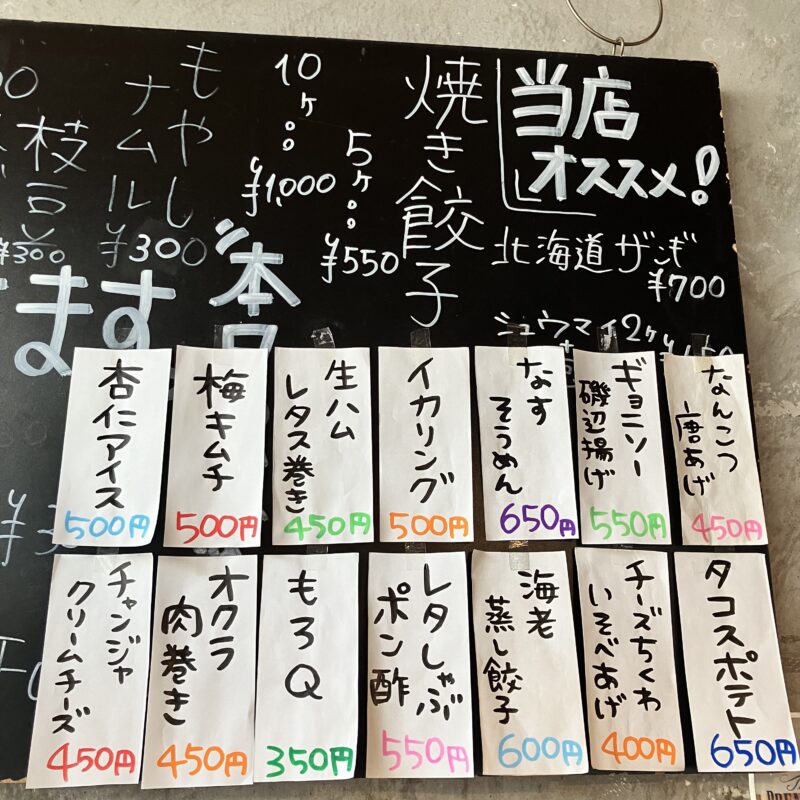 当店
オススメ!
北海道ザンギ
¥700
シュウマイ2ヶ
焼き餃子
5ヶ
¥550
10ヶ
¥1,000
もやし
ナムル
¥300
枝豆
¥300
ます
なんこつ
唐あげ
450円
ギョニソー
磯辺揚げ
550円
なす
そうめん
650円
イカリング
500円
生ハム
レタス巻き
450円
梅キムチ
500円
杏仁アイス
500円
タコスポテト
650円
チーズちくわ
いそべあげ
400円
海老
蒸し餃子
600円
レタしゃぶ
ポン酢
550円
もろQ
350円
オクラ
肉巻き
450円
チャンジャ
クリームチーズ
450円